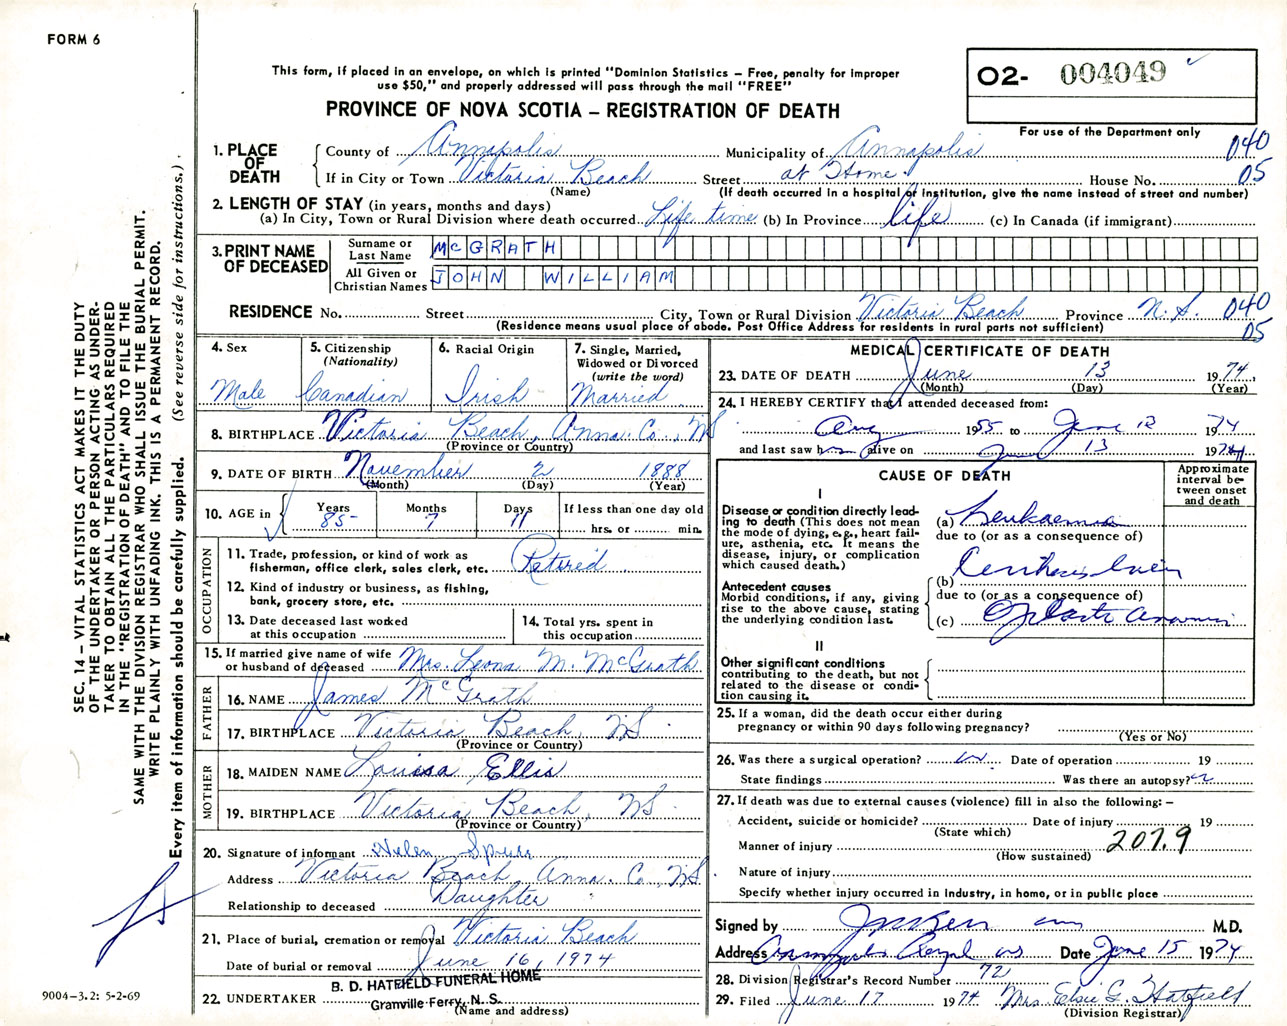 FORM 6
This form, if placed in an envelope, on which is printed "Dominion Statistics – Free, penalty for improper
use $50," and properly addressed will pass through the mail "FREE"
PROVINCE OF NOVA SCOTIA – REGISTRATION OF DEATH
O2- 004049
For use of the Department only
1. PLACE OF DEATH
County of Annapolis Municipality of Annapolis 040
If in City or Town Victoria Beach Street at Home. House No. 05
(Name) (If death occurred in a hospital or institution, give the name instead of street and number)
2. LENGTH OF STAY (in years, months and days)
(a) In City, Town or Rural Division where death occurred Life time (b) In Province life (c) In Canada (if immigrant)
3. PRINT NAME OF DECEASED
Surname or Last Name McGRATH
All Given or Christian Names JOHN WILLIAM
RESIDENCE No. Street City, Town or Rural Division Victoria Beach Province N.S. 040
(Residence means usual place of abode. Post Office Address for residents in rural parts not sufficient) 05
4. Sex Male
5. Citizenship (Nationality) Canadian
6. Racial Origin Irish
7. Single, Married, Widowed or Divorced (write the word) Married
8. BIRTHPLACE Victoria Beach, Anna Co., NS
(Province or Country)
9. DATE OF BIRTH November 2 1888
(Month) (Day) (Year)
10. AGE in Years 85 Months 7 Days 11 If less than one day old
hrs. or min.
OCCUPATION
11. Trade, profession, or kind of work as
fisherman, office clerk, sales clerk, etc. Retired
12. Kind of industry or business, as fishing,
bank, grocery store, etc.
13. Date deceased last worked
at this occupation
14. Total yrs. spent in
this occupation
15. If married give name of wife
or husband of deceased Mrs. Leona M. McGrath
FATHER
16. NAME James McGrath
17. BIRTHPLACE Victoria Beach, NS
(Province or Country)
MOTHER
18. MAIDEN NAME Louisa Ellis
19. BIRTHPLACE Victoria Beach, NS
(Province or Country)
20. Signature of informant Helen Spurr
Address Victoria Beach, Anna. Co., NS
Relationship to deceased Daughter
21. Place of burial, cremation or removal Victoria Beach
Date of burial or removal June 16, 1974
22. UNDERTAKER B. D. HATFIELD FUNERAL HOME
Granville Ferry, N. S.
(Name and address)
MEDICAL CERTIFICATE OF DEATH
23. DATE OF DEATH June 13 1974
(Month) (Day) (Year)
24. I HEREBY CERTIFY that I attended deceased from:
Aug 1955 to June 12 1974
and last saw him alive on June 13 1974
CAUSE OF DEATH
Approximate interval between onset and death
I
Disease or condition directly lead-
ing to death (This does not mean
the mode of dying, e.g., heart fail-
ure, asthenia, etc. It means the
disease, injury, or complication
which caused death.)
(a) Leukaemia
due to (or as a consequence of)
Antecedent causes
Morbid conditions, if any, giving
rise to the above cause, stating
the underlying condition last.
(b)
due to (or as a consequence of)
(c)
II
Other significant conditions
contributing to the death, but not
related to the disease or condi-
tion causing it.
25. If a woman, did the death occur either during
pregnancy or within 90 days following pregnancy?
(Yes or No)
26. Was there a surgical operation? Date of operation 19
State findings Was there an autopsy?
27. If death was due to external causes (violence) fill in also the following: –
Accident, suicide or homicide? Date of injury 19
(State which)
Manner of injury 207.9
(How sustained)
Nature of injury
Specify whether injury occurred in industry, in home, or in public place
Signed by M.D.
Address Annapolis Royal NS Date June 15 1974
28. Division Registrar's Record Number 72
29. Filed June 17 1974 Mrs. Elsie G. Hatfield
(Division Registrar)
SEC. 14 – VITAL STATISTICS ACT MAKES IT THE DUTY
OF THE UNDERTAKER OR PERSON ACTING AS UNDER-
TAKER TO OBTAIN ALL THE PARTICULARS REQUIRED
IN THE "REGISTRATION OF DEATH" AND TO FILE THE
SAME WITH THE DIVISION REGISTRAR WHO SHALL ISSUE THE BURIAL PERMIT.
WRITE PLAINLY WITH UNFADING INK. THIS IS A PERMANENT RECORD.
Every item of information should be carefully supplied. (See reverse side for instructions.)
9004-3.2: 5-2-69